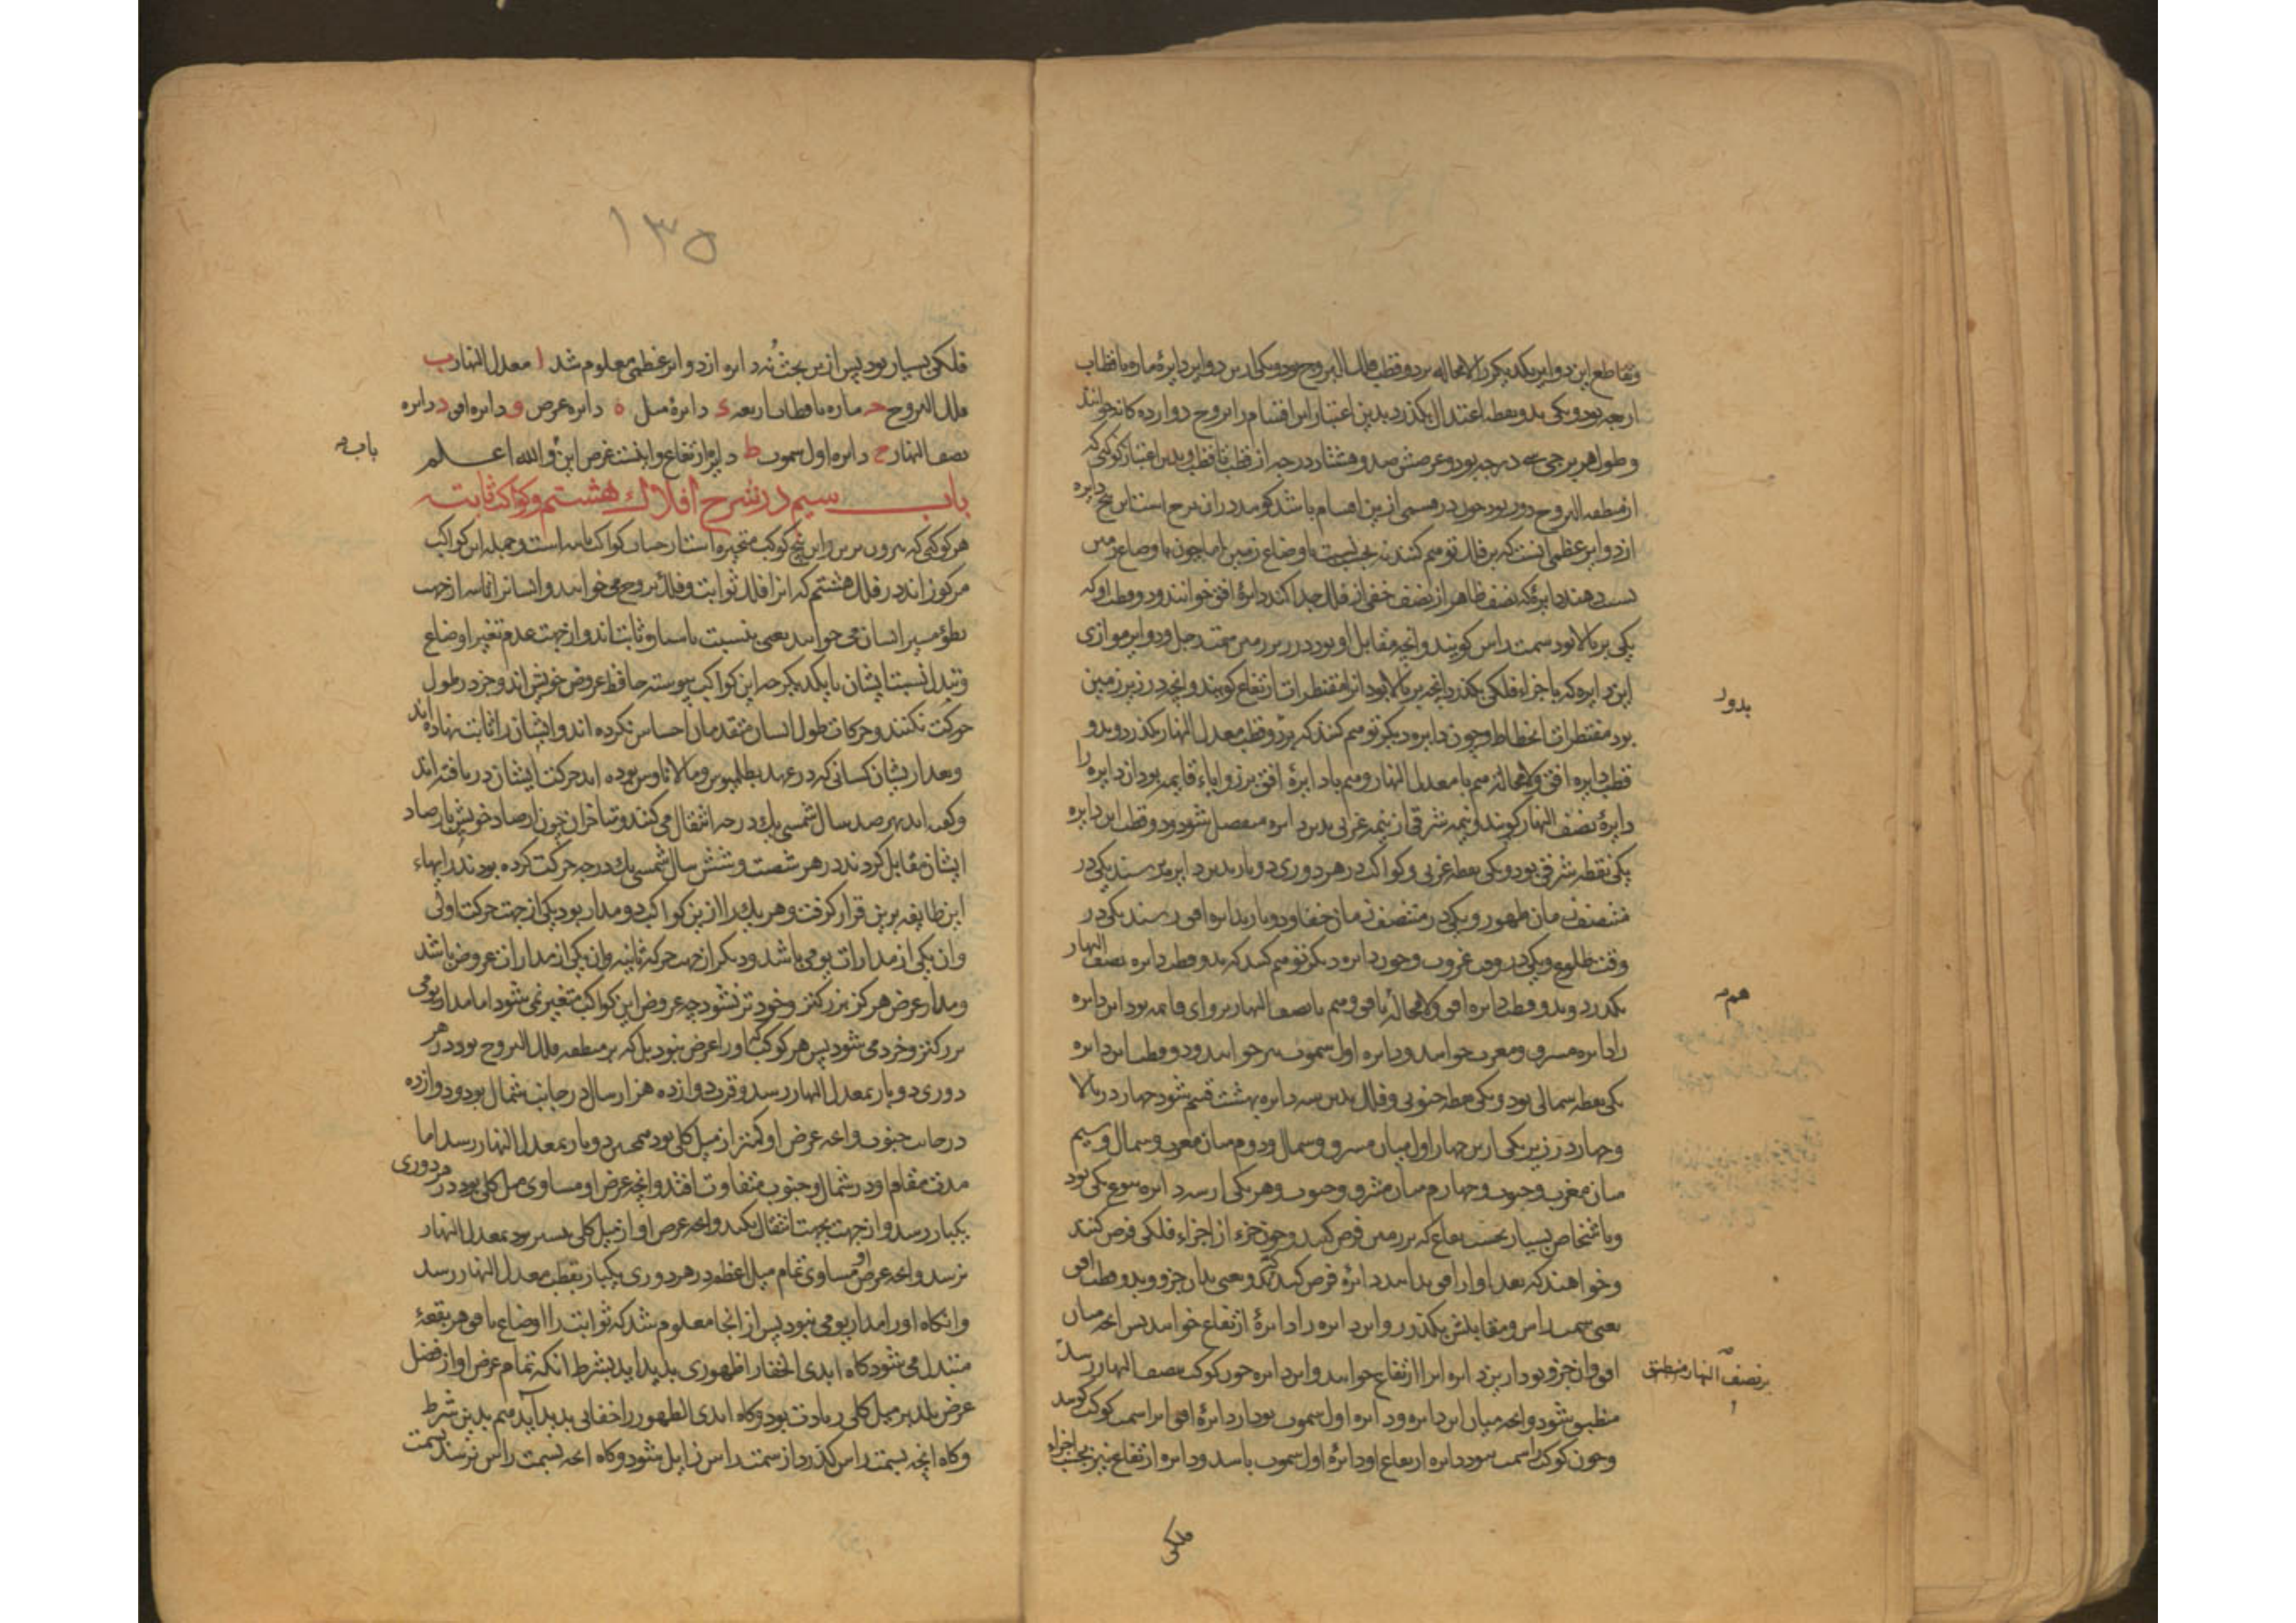 وتقاطع این دوایر یکدیکر را لامحاله بر دو قطب فلک البروج بود ویکی ازین دوایر دایرهٔ ماره باقطاب
اربعه بود ویکی بدو نقطه اعتدال بکذرد بدین اعتبار این اقسام را بروج دوازده کانه خوانند
وطول هر برجی سی درجه بود وعرضش صد وهشتاد درجه از قطب تا قطب وبدین اعتبار کوکبی که
از منطقه البروج دور بود چون در قسمی ازین اقسام باشد کویند در ان برج است این پنج دایره
از دوایر عظمی انست که بر فلک توهم کنند نه بحسب نسبت با اوضاع زمین اما چون با اوضاع زمین
نسبت دهند دایرهٔ که نصف ظاهر از نصف خفی از فلک جدا کند دایرهٔ افق خوانند ودو قطب او که
یکی بر بالا بود سمت راس کویند وانچه مقابل او بود در زیر زمین سمت رجل ودوایر موازی
این دایره که باجزاء فلکی بکذرد انچه بر بالا بود انرا مقنطرات ارتفاع کویند وانچه در زیر زمین
بدور
بود مقنطرات انحطاط وچون دایره دیکر توهم کنند که بر دو قطب معدل النهار بکذرد وبدو
قطب دایره افق ولامحاله هم با معدل النهار وهم با دایرهٔ افق بر زوایاء قایمه بود ان دایره را
دایرهٔ نصف النهار کویند ونیمه شرقی از نیمه غربی بدین دایره منفصل شود ودو قطب این دایره
یکی نقطه شرقی بود ویکی نقطه غربی وکواکب در هر دوری دو بار بدین دایره رسند یکی در
منتصف زمان ظهور ویکی در منتصف زمان خفا ودو بار بدایره افق رسند یکی در
وقت طلوع ویکی در وقت غروب وچون دایره دیکر توهم کنند که بدو قطب دایره نصف النهار
بکذرد وبدو قطب دایره افق ولامحاله با افق وهم با نصف النهار بر زوای قایمه بود این دایره
هم
را دایره مشرق ومغرب خوانند ودایره اول سموت نیز خوانند ودو قطب این دایره
یکی نقطه شمالی بود ویکی نقطه جنوبی وفلک بدین سه دایره بهشت قسم شود چهار در بالا
وچهار در زیر یکی ازین چهار اول میان مشرق وشمال ودوم میان مغرب وشمال وسیم
میان مغرب وجنوب وچهارم میان مشرق وجنوب وهر یکی از سه دایره بنوع یکی بود
وباشخاص بسیار بحسب بقاع که بر زمین فرض کنند وچون جزء از اجزاء فلکی فرض کنند
وخواهند که بعد او از افق بدانند دایرهٔ فرض کنند که بدان جزو وبدو قطب افق
یعنی سمت راس ومقابلش بکذرد واین دایره را دایرهٔ ارتفاع خوانند پس انچه میان
افق وان جزو بود ازین دایره انرا ارتفاع خوانند واین دایره چون کوکب بنصف النهار رسد
بر نصف النهار منطبق
منطبق شود وانچه میان این دایره ودایره اول سموت بود از دایرهٔ افق انرا سمت کوکب کویند
وچون کوکب را سمت نبود دایره ارتفاع او دایرهٔ اول سموت باشد ودایره ارتفاع نیز بحسب اجزاء
فلکی
۱۳۵
فلکی بسیار بود پس ازین بحث نُه دایره از دوایر عظمی معلوم شد ا معدل النهار ب
فلک البروج ح ماره باقطاب اربعه د دایرهٔ میل ه دایره عرض و دایره افق ز دایره
نصف النهار ح دایره اول سموت ط دایره ارتفاع واینست غرض این والله اعلم
باب
باب سیم در شرح افلاک هشتم وکواکب ثابته
هر کوکبی که بیرون نیرین واین پنج کوکب متحیره است از حساب کواکب ثابته است وجمله این کواکب
مرکوز اند در فلک هشتم که انرا فلک ثوابت وفلک بروج می خوانند وایشانرا ثابته از جهت
بطؤ سیر ایشان می خوانند یعنی بنسبت با سیاره ثابت اند واز جهت عدم تغیر اوضاع
وتبدل نسبت ایشان با یکدیکر چه این کواکب پیوسته حافظ عروض خویش اند وجز در طول
حرکت نکنند وحرکات طول ایشان متقدمان احساس نکرده اند وایشان را ثابته نهاده اند
وبعد از یشان کسانی که در عهد بطلمیوس ومالاناوس بوده اند حرکت ایشان دریافته اند
وکفته اند بهر صد سال شمسی یک درجه انتقال می کنند ومتاخران چون ارصاد خویش بارصاد
ایشان مقابل کردند در هر شصت وشش سال شمسی یک درجه حرکت کرده بودند رایهاء
این طایفه برین قرار کرفت وهر یک را ازین کواکب دو مدار بود یکی از جهت حرکت اولی
وان یکی از مدارات یومی باشد ودیکر از جهت حرکة ثانیه وان یکی از مدارات عروض باشد
ومدار عرض هرکز بزرکتر وخردتر نشود چه عروض این کواکب متغیر نمی شود اما مدار یومی
بزرکتر وخرد می شود پس هر کوکب که او را عرض نبود بل که بر منطقه فلک البروج بود در هر
دوری دو بار بمعدل النهار رسد وقرب دوازده هزار سال در جانب شمال بود ودوازده
در جانب جنوب وانچه عرض او کمتر از میل کلی بود همچنین دو بار بمعدل النهار رسد اما
مدت مقام او در شمال وجنوب متفاوت افتد وانچه عرض او مساوی میل کلی بود در هر دوری
یکبار رسد واز جهت بجهت انتقال نکند وانچه عرض او از میل کلی بیشتر بود بمعدل النهار
نرسد وانچه عرض او مساوی تمام میل اعظم در هر دوری یکبار بقطب معدل النهار رسد
وانکاه او را مدار یومی نبود پس از انجا معلوم شد که ثوابت را اوضاع با افق هر بقعهٔ
متبدل می شود کاه ابدی الخفا را ظهوری بدید اید بشرط انکه تمام عرض او از فضل
عرض بلد بر میل کلی زیادت بود وکاه ابدی الظهور را خفایی بدید آید هم بدین شرط
وکاه انچه بسمت راس کذرد از سمت راس زایل شود وکاه انچه بسمت راس نرسد بسمت